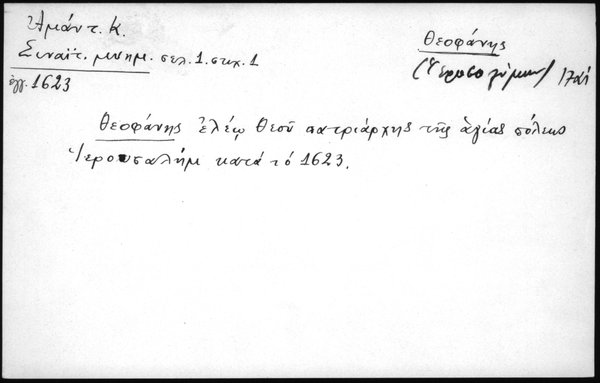 Ἀμάντ. Κ.
Σιναϊτ. μνημ. σελ. 1. στιχ. 1
ἐγγ. 1623
Θεοφάνης
(Ἱεροσολύμων) 17α1
Θεοφάνης ἐλέῳ Θεοῦ πατριάρχης τῆς ἁγίας πόλεως
Ἱερουσαλήμ κατά τό 1623.